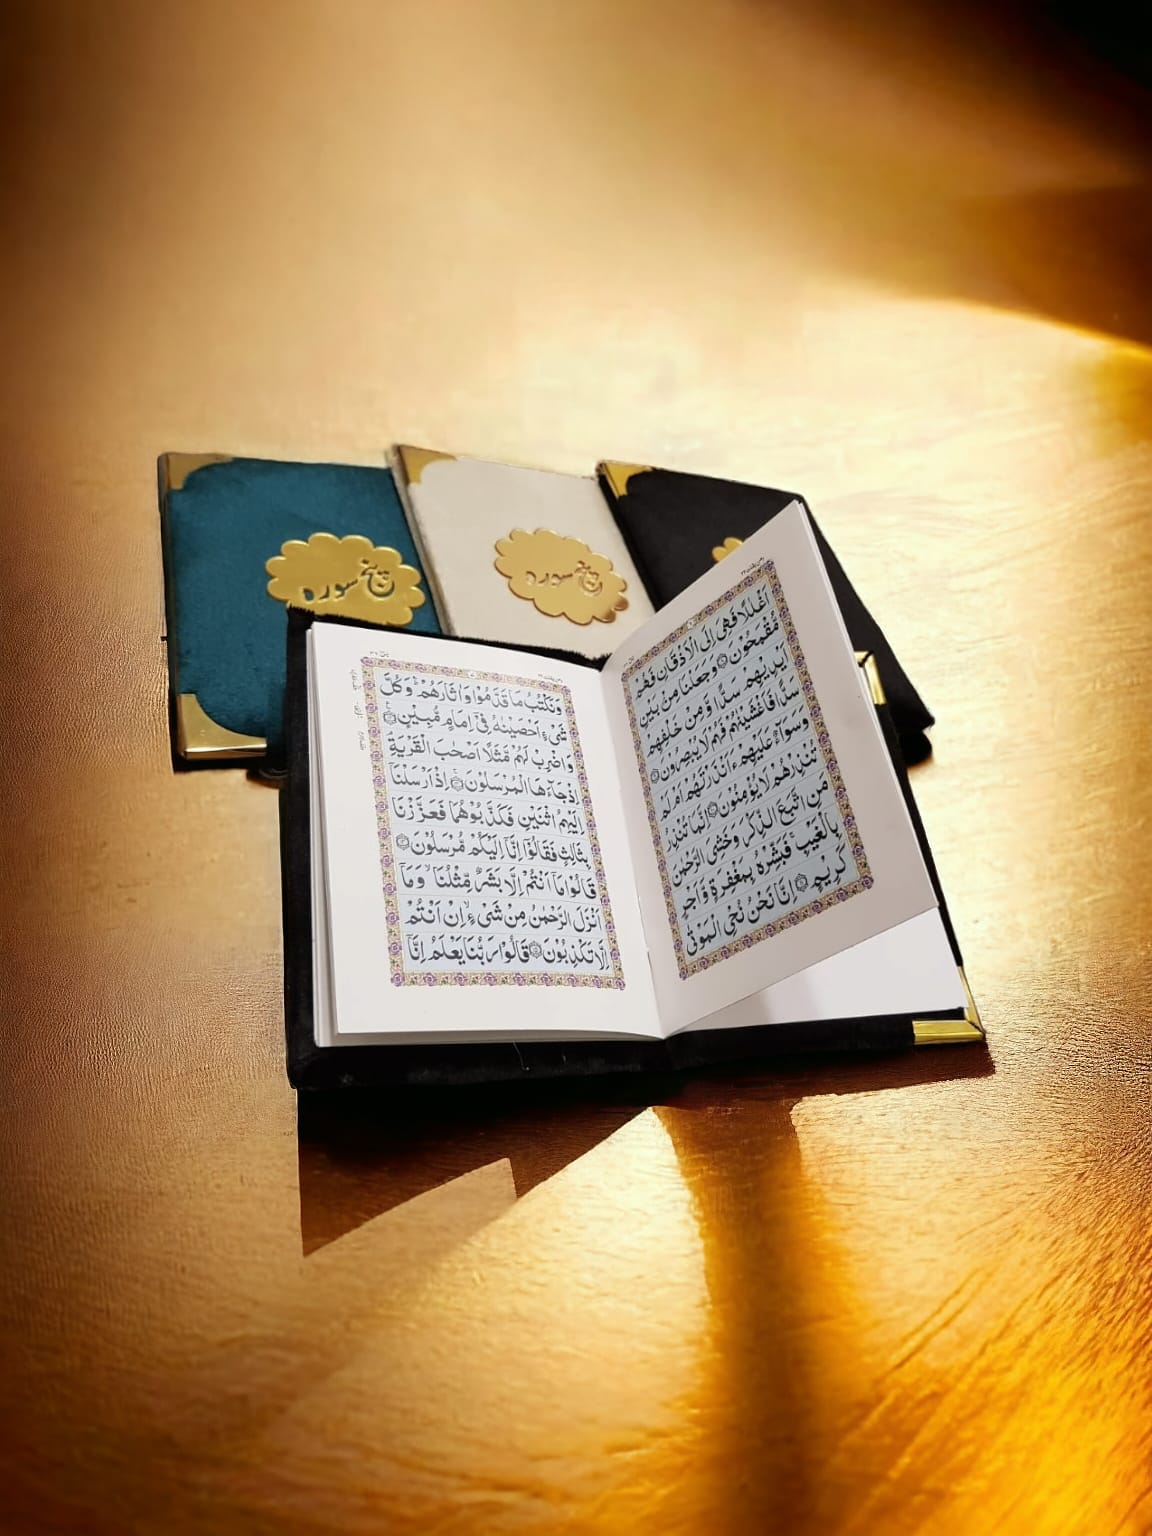 پنج سورہ
پنج سورہ
اَغْلٰلًا فَهِىَ اِلَى الْاَذْقَانِ فَهُمْ
مُّقْمَحُوْنَ وَجَعَلْنَا مِنْۢ بَيْنِ
اَيْدِيْهِمْ سَدًّا وَّمِنْ خَلْفِهِمْ
سَدًّا فَاَغْشَيْنٰهُمْ فَهُمْ لَا يُبْصِرُوْنَ
وَسَوَآءٌ عَلَيْهِمْ ءَاَنْذَرْتَهُمْ اَمْ لَمْ
تُنْذِرْهُمْ لَا يُؤْمِنُوْنَ اِنَّمَا تُنْذِرُ
مَنِ اتَّبَعَ الذِّكْرَ وَخَشِىَ الرَّحْمٰنَ
بِالْغَيْبِ فَبَشِّرْهُ بِمَغْفِرَةٍ وَّاَجْرٍ
كَرِيْمٍ اِنَّا نَحْنُ نُحْىِ الْمَوْتٰى
وَنَكْتُبُ مَا قَدَّمُوْا وَاٰثَارَهُمْ وَكُلَّ
شَىْءٍ اَحْصَيْنٰهُ فِىْٓ اِمَامٍ مُّبِيْنٍ
وَاضْرِبْ لَهُمْ مَّثَلًا اَصْحٰبَ الْقَرْيَةِ
اِذْ جَآءَهَا الْمُرْسَلُوْنَ اِذْ اَرْسَلْنَآ
اِلَيْهِمُ اثْنَيْنِ فَكَذَّبُوْهُمَا فَعَزَّزْنَا
بِثَالِثٍ فَقَالُوْٓا اِنَّآ اِلَيْكُمْ مُّرْسَلُوْنَ
قَالُوْا مَآ اَنْتُمْ اِلَّا بَشَرٌ مِّثْلُنَا وَمَآ
اَنْزَلَ الرَّحْمٰنُ مِنْ شَىْءٍ اِنْ اَنْتُمْ
اِلَّا تَكْذِبُوْنَ قَالُوْا رَبُّنَا يَعْلَمُ اِنَّآ